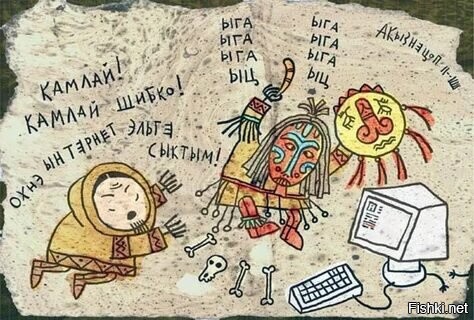 КАМЛАЙ!
КАМЛАЙ ШИБКО!
ОХНЭ ЫНТЭРНЕТ ЭЛЬГЭ
СЫКТЫМ!
ЫГА
ЫГА
ЫГА
ЫЦ
ЫГА
ЫГА
ЫГА
ЫЦ
Fishki.net